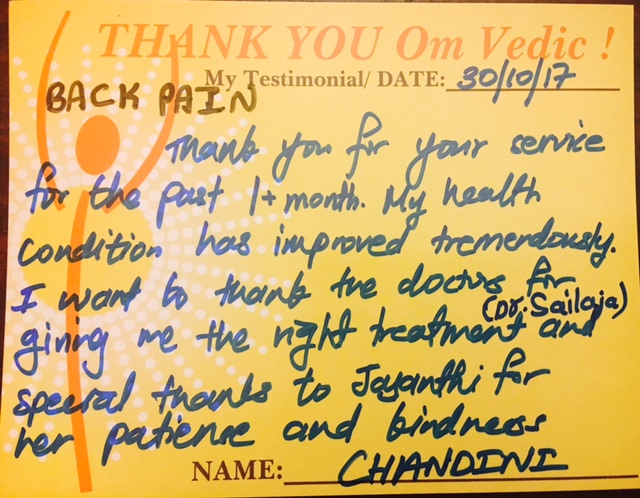 THANK YOU Om Vedic !
My Testimonial/ DATE: 30/10/17
BACK PAIN
Thank you for your service
for the past 1+ month. My health
condition has improved tremendously.
I want to thank the doctors for
(Dr. Sailaja)
giving me the right treatment and
special thanks to Jayanthi for
her patience and kindness
NAME: CHANDINI